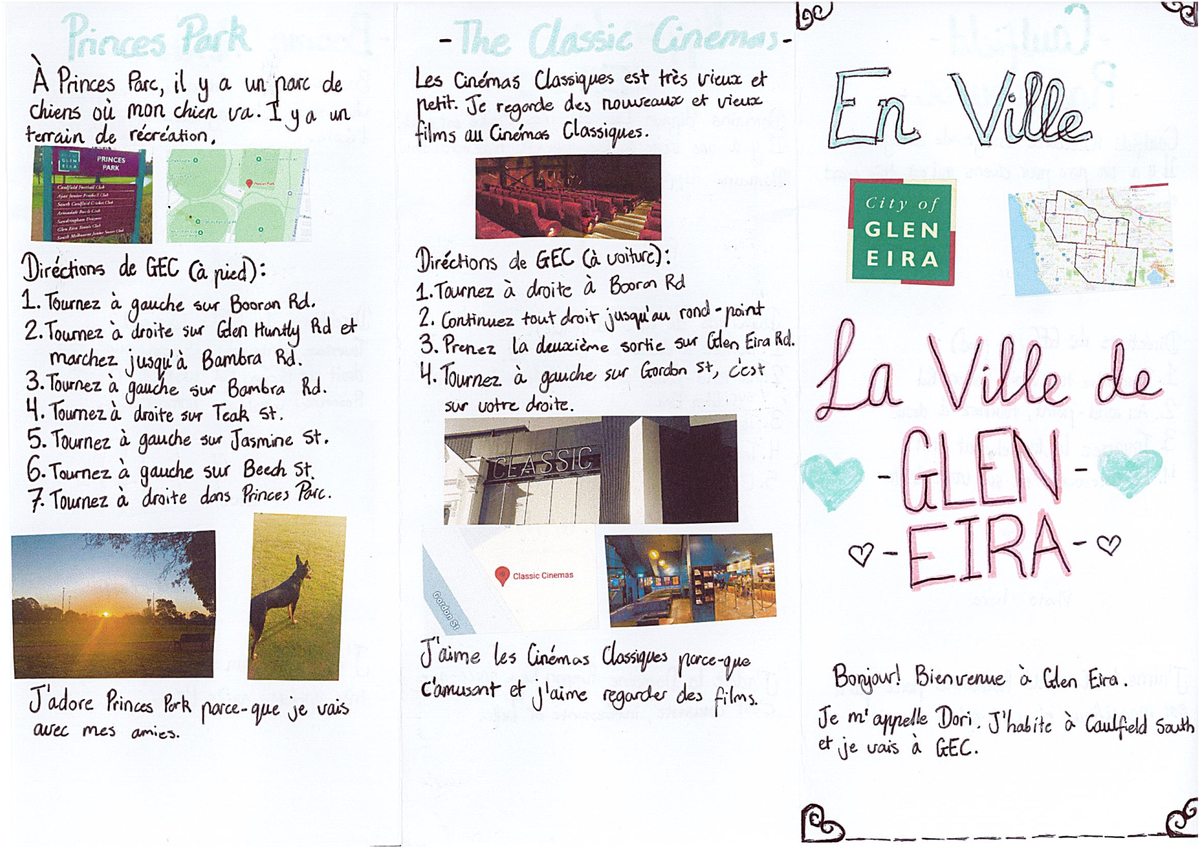 Princes Park
À Princes Parc, il y a un parc de
chiens où mon chien va. I y a un
terrain de récréation.
GLEN
EIRA
PRINCES
PARK
Caulfield Football Club
Ajax Junior Football Club
South Caulfield Cricket Club
Glen Eira Tennis Club
Princes Park
Diréctions de GEC (à pied):
1. Tournez à gauche sur Booran Rd.
2. Tournez à droite sur Glen Huntly Rd et
marchez jusqu'à Bambra Rd.
3. Tournez à gauche sur Bambra Rd.
4. Tournez à droite sur Teak St.
5. Tournez à gauche sur Jasmine St.
6. Tournez à gauche sur Beech St.
7. Tournez à droite dans Princes Parc.
J'adore Princes Park parce-que je vais
avec mes amies.
-The Classic Cinemas-
Les Cinémas Classiques est très vieux et
petit. Je regarde des nouveaux et vieux
films au Cinémas Classiques.
Diréctions de GEC (à voiture):
1. Tournez à droite à Booran Rd
2. Continuez tout droit jusqu'au rond-point
3. Prenez la deuxième sortie sur Glen Eira Rd.
4. Tournez à gauche sur Gordon St, c'est
sur votre droite.
CLASSIC
Classic Cinemas
Gordon St
J'aime les Cinémas Classiques parce-que
c'amusant et j'aime regarder des films.
En Ville
City of
GLEN
EIRA
La Ville de
-GLEN-
-EIRA-
Bonjour! Bienvenue à Glen Eira.
Je m'appelle Dori. J'habite à Caulfield South
et je vais à GEC.